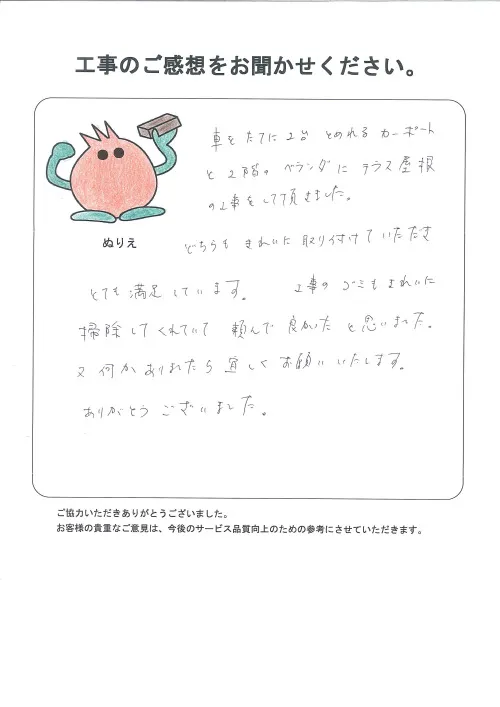 工事のご感想をお聞かせください。
車をたてに2台 とめれるカーポート
と 2階の ベランダに テラス屋根
の工事をして頂きました。
ぬりえ
どちらも きれいに 取り付けて いただき
とても 満足しています。 工事の ゴミもきれいに
掃除してくれていて 頼んで 良かった と思いました。
又 何かありましたら 宜しく お願いいたします。
ありがとう ございました。
ご協力いただきありがとうございました。
お客様の貴重なご意見は、今後のサービス品質向上のための参考にさせていただきます。